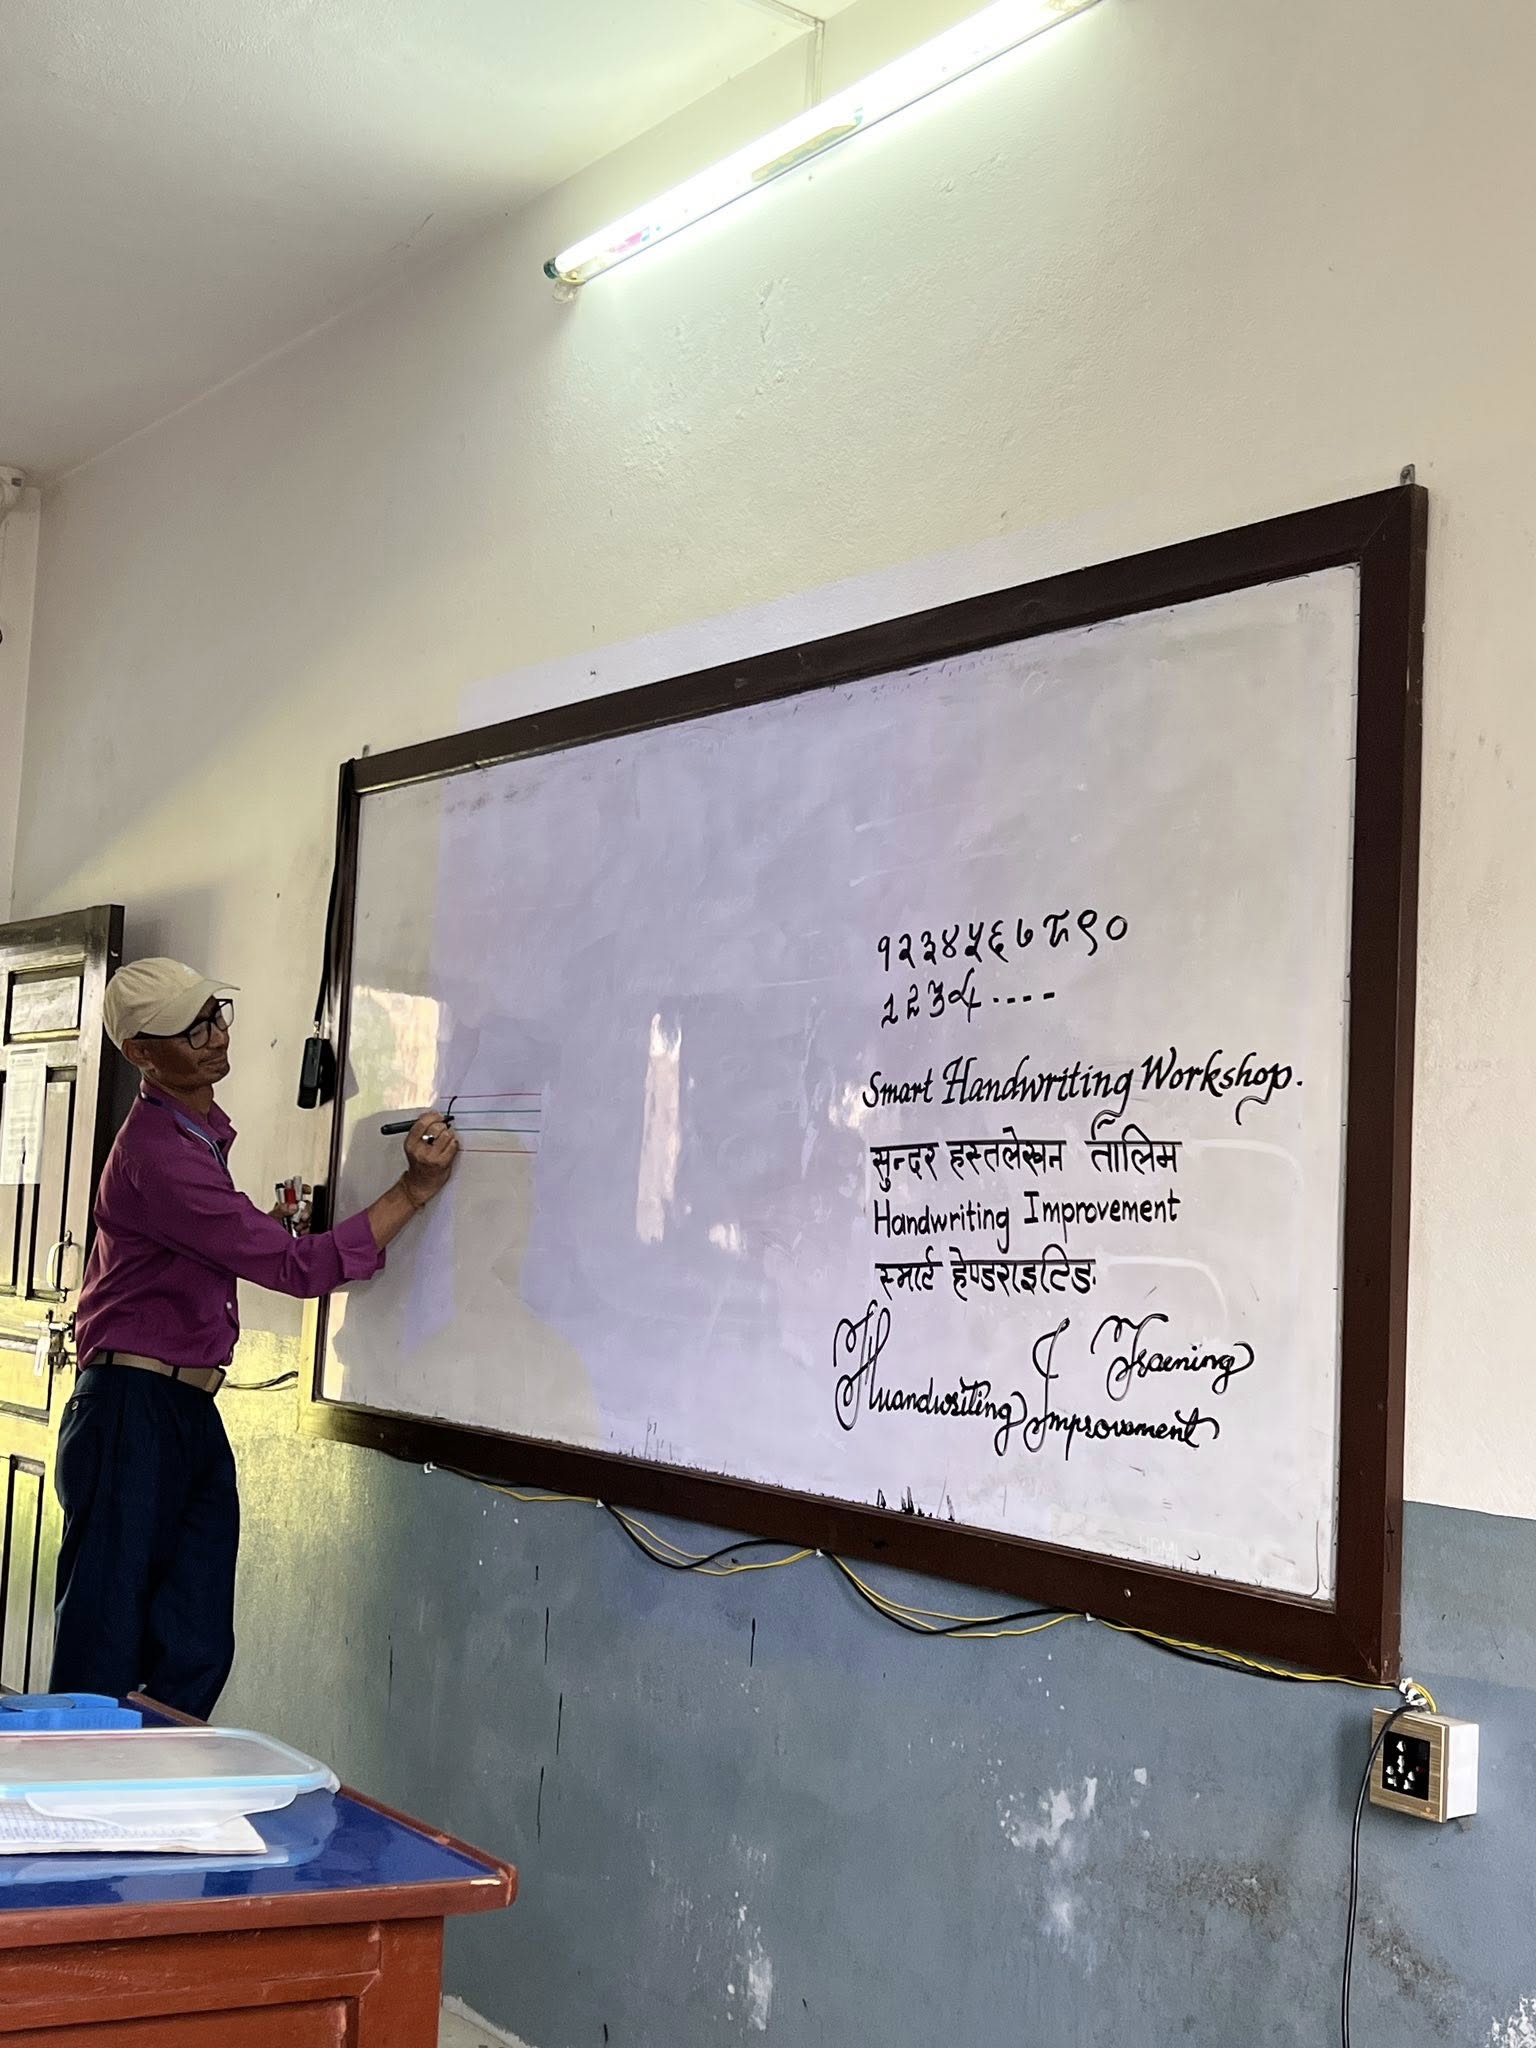 १२३४५६७८९०
१२३४....
Smart Handwriting Workshop.
सुन्दर हस्तलेखन तालिम
Handwriting Improvement
स्मार्ट हेण्डराइटिङ
Training
Handwriting Improvement